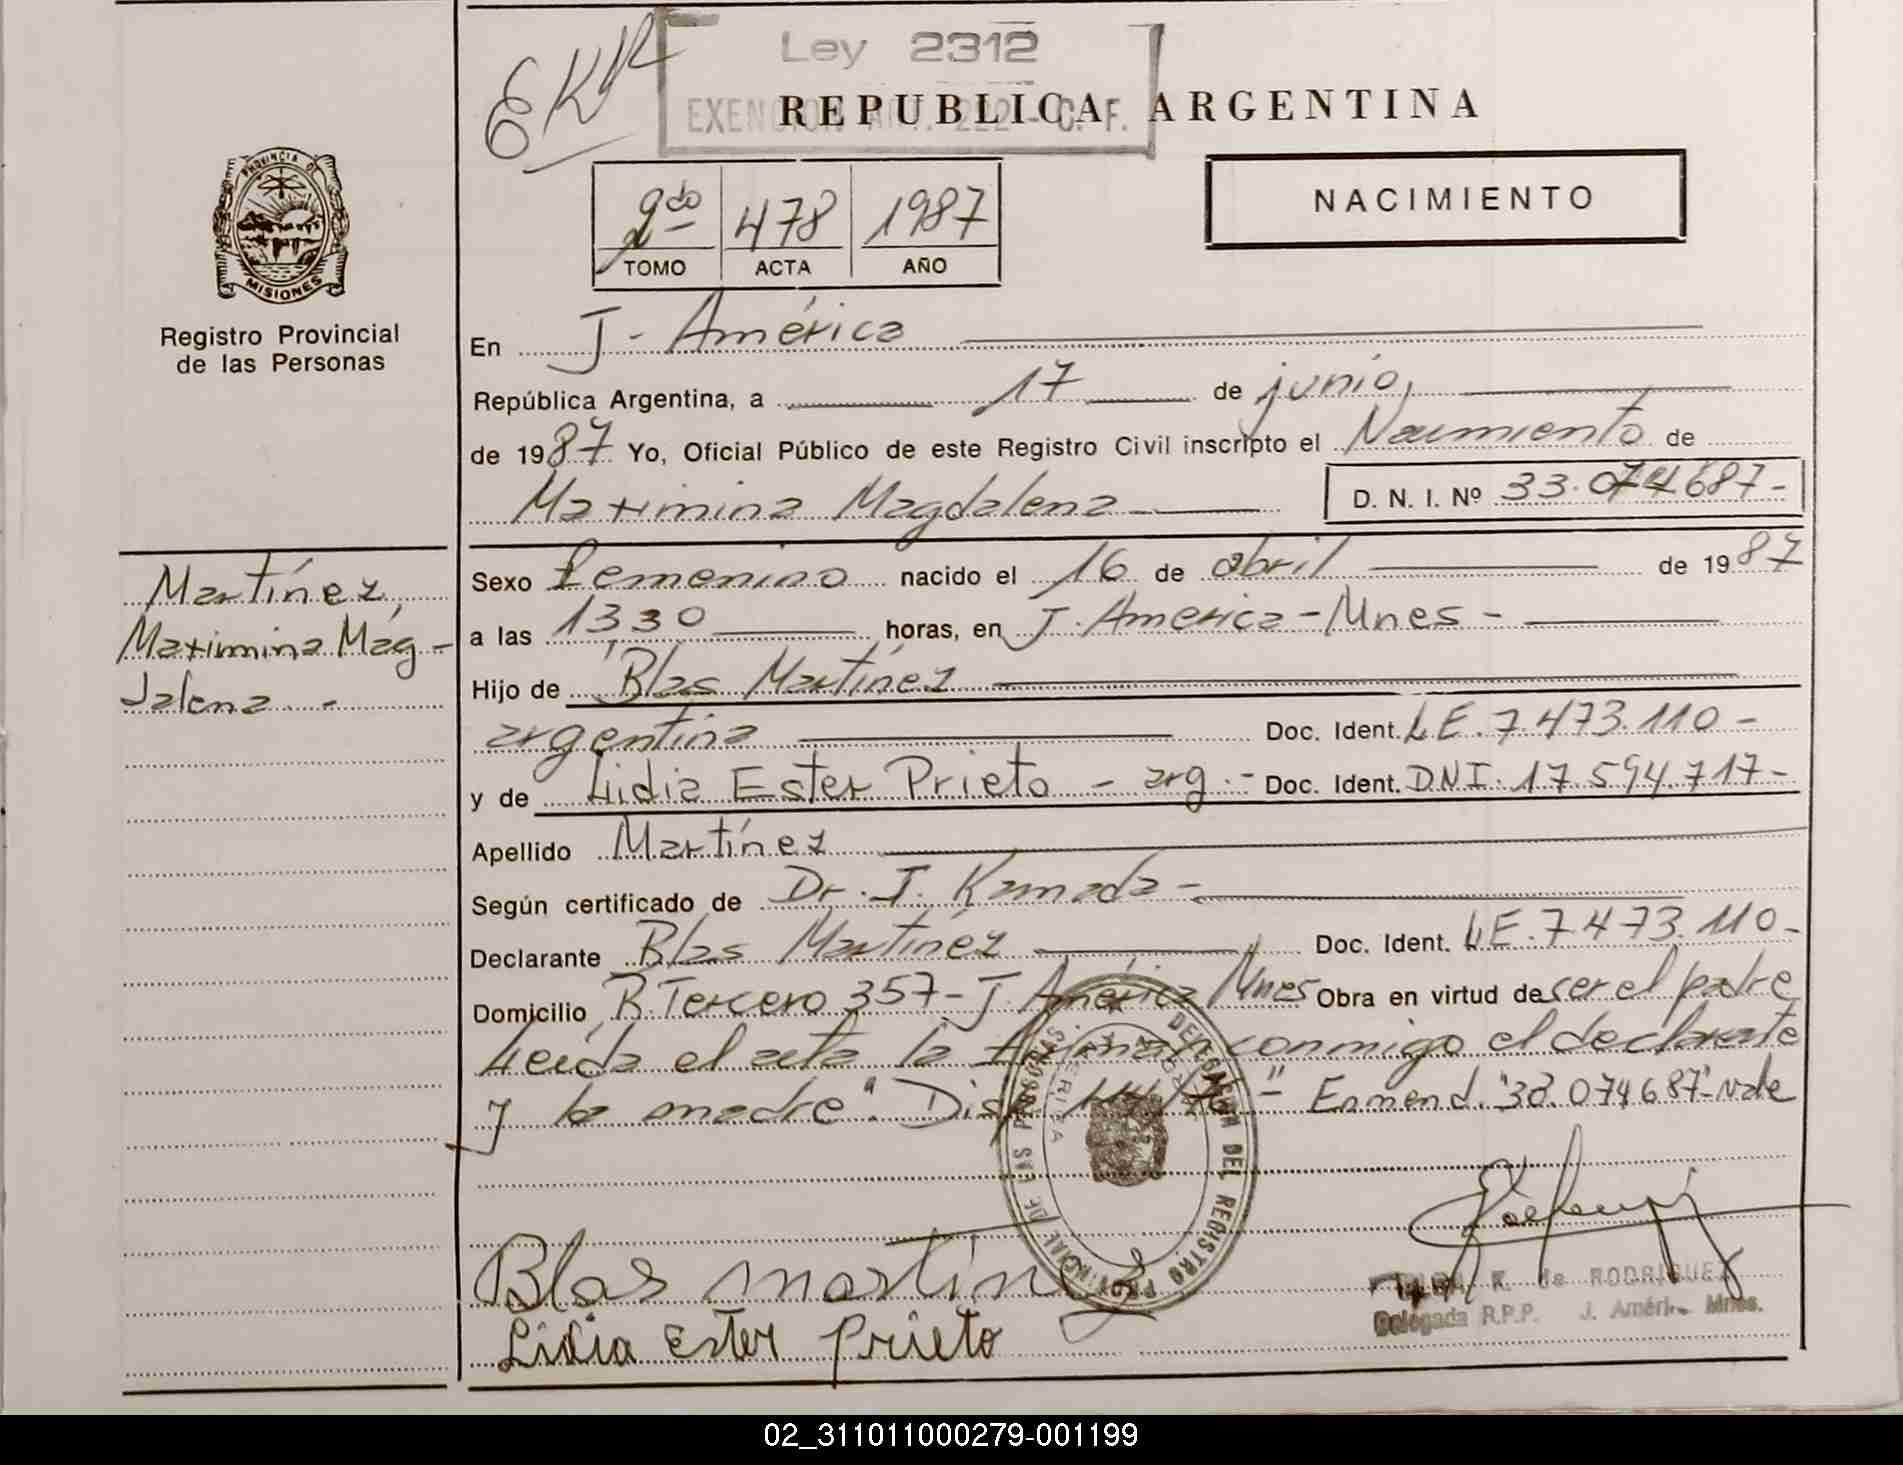 EKR
Ley 2312
EXENCION ART. 222 - C. F.
REPUBLICA ARGENTINA
NACIMIENTO
2do 478 1987
TOMO ACTA AÑO
PROVINCIA DE MISIONES
Registro Provincial
de las Personas
En J. América
República Argentina, a 17 de junio,
de 1987 Yo, Oficial Público de este Registro Civil inscripto el Nacimiento de
Maximina Magdalena D. N. I. Nº 33.074687-
Martínez,
Maximina Mag-
dalena -
Sexo femenino nacido el 16 de abril de 1987
a las 1330 horas, en J. America - Mnes -
Hijo de Blas Martínez
argentina Doc. Ident. LE. 7.473.110 -
y de Lidia Ester Prieto - arg. - Doc. Ident. DNI. 17.594.717-
Apellido Martínez
Según certificado de Dr. J. Kamada -
Declarante Blas Martínez Doc. Ident. LE. 7.473.110-
Domicilio R. Tercero 357 - J. América Mnes Obra en virtud de ser el padre
Leída el acta la firman conmigo el declarante
y la madre". Disp. " - Enmend. "33.074687" Vale
DELEGACION DEL REGISTRO PROVINCIAL DE LAS PERSONAS
Blas martinez
Lidia Ester Prieto
K. de RODRIGUEZ
Delegada R.P.P. J. América Mnes.
02_311011000279-001199